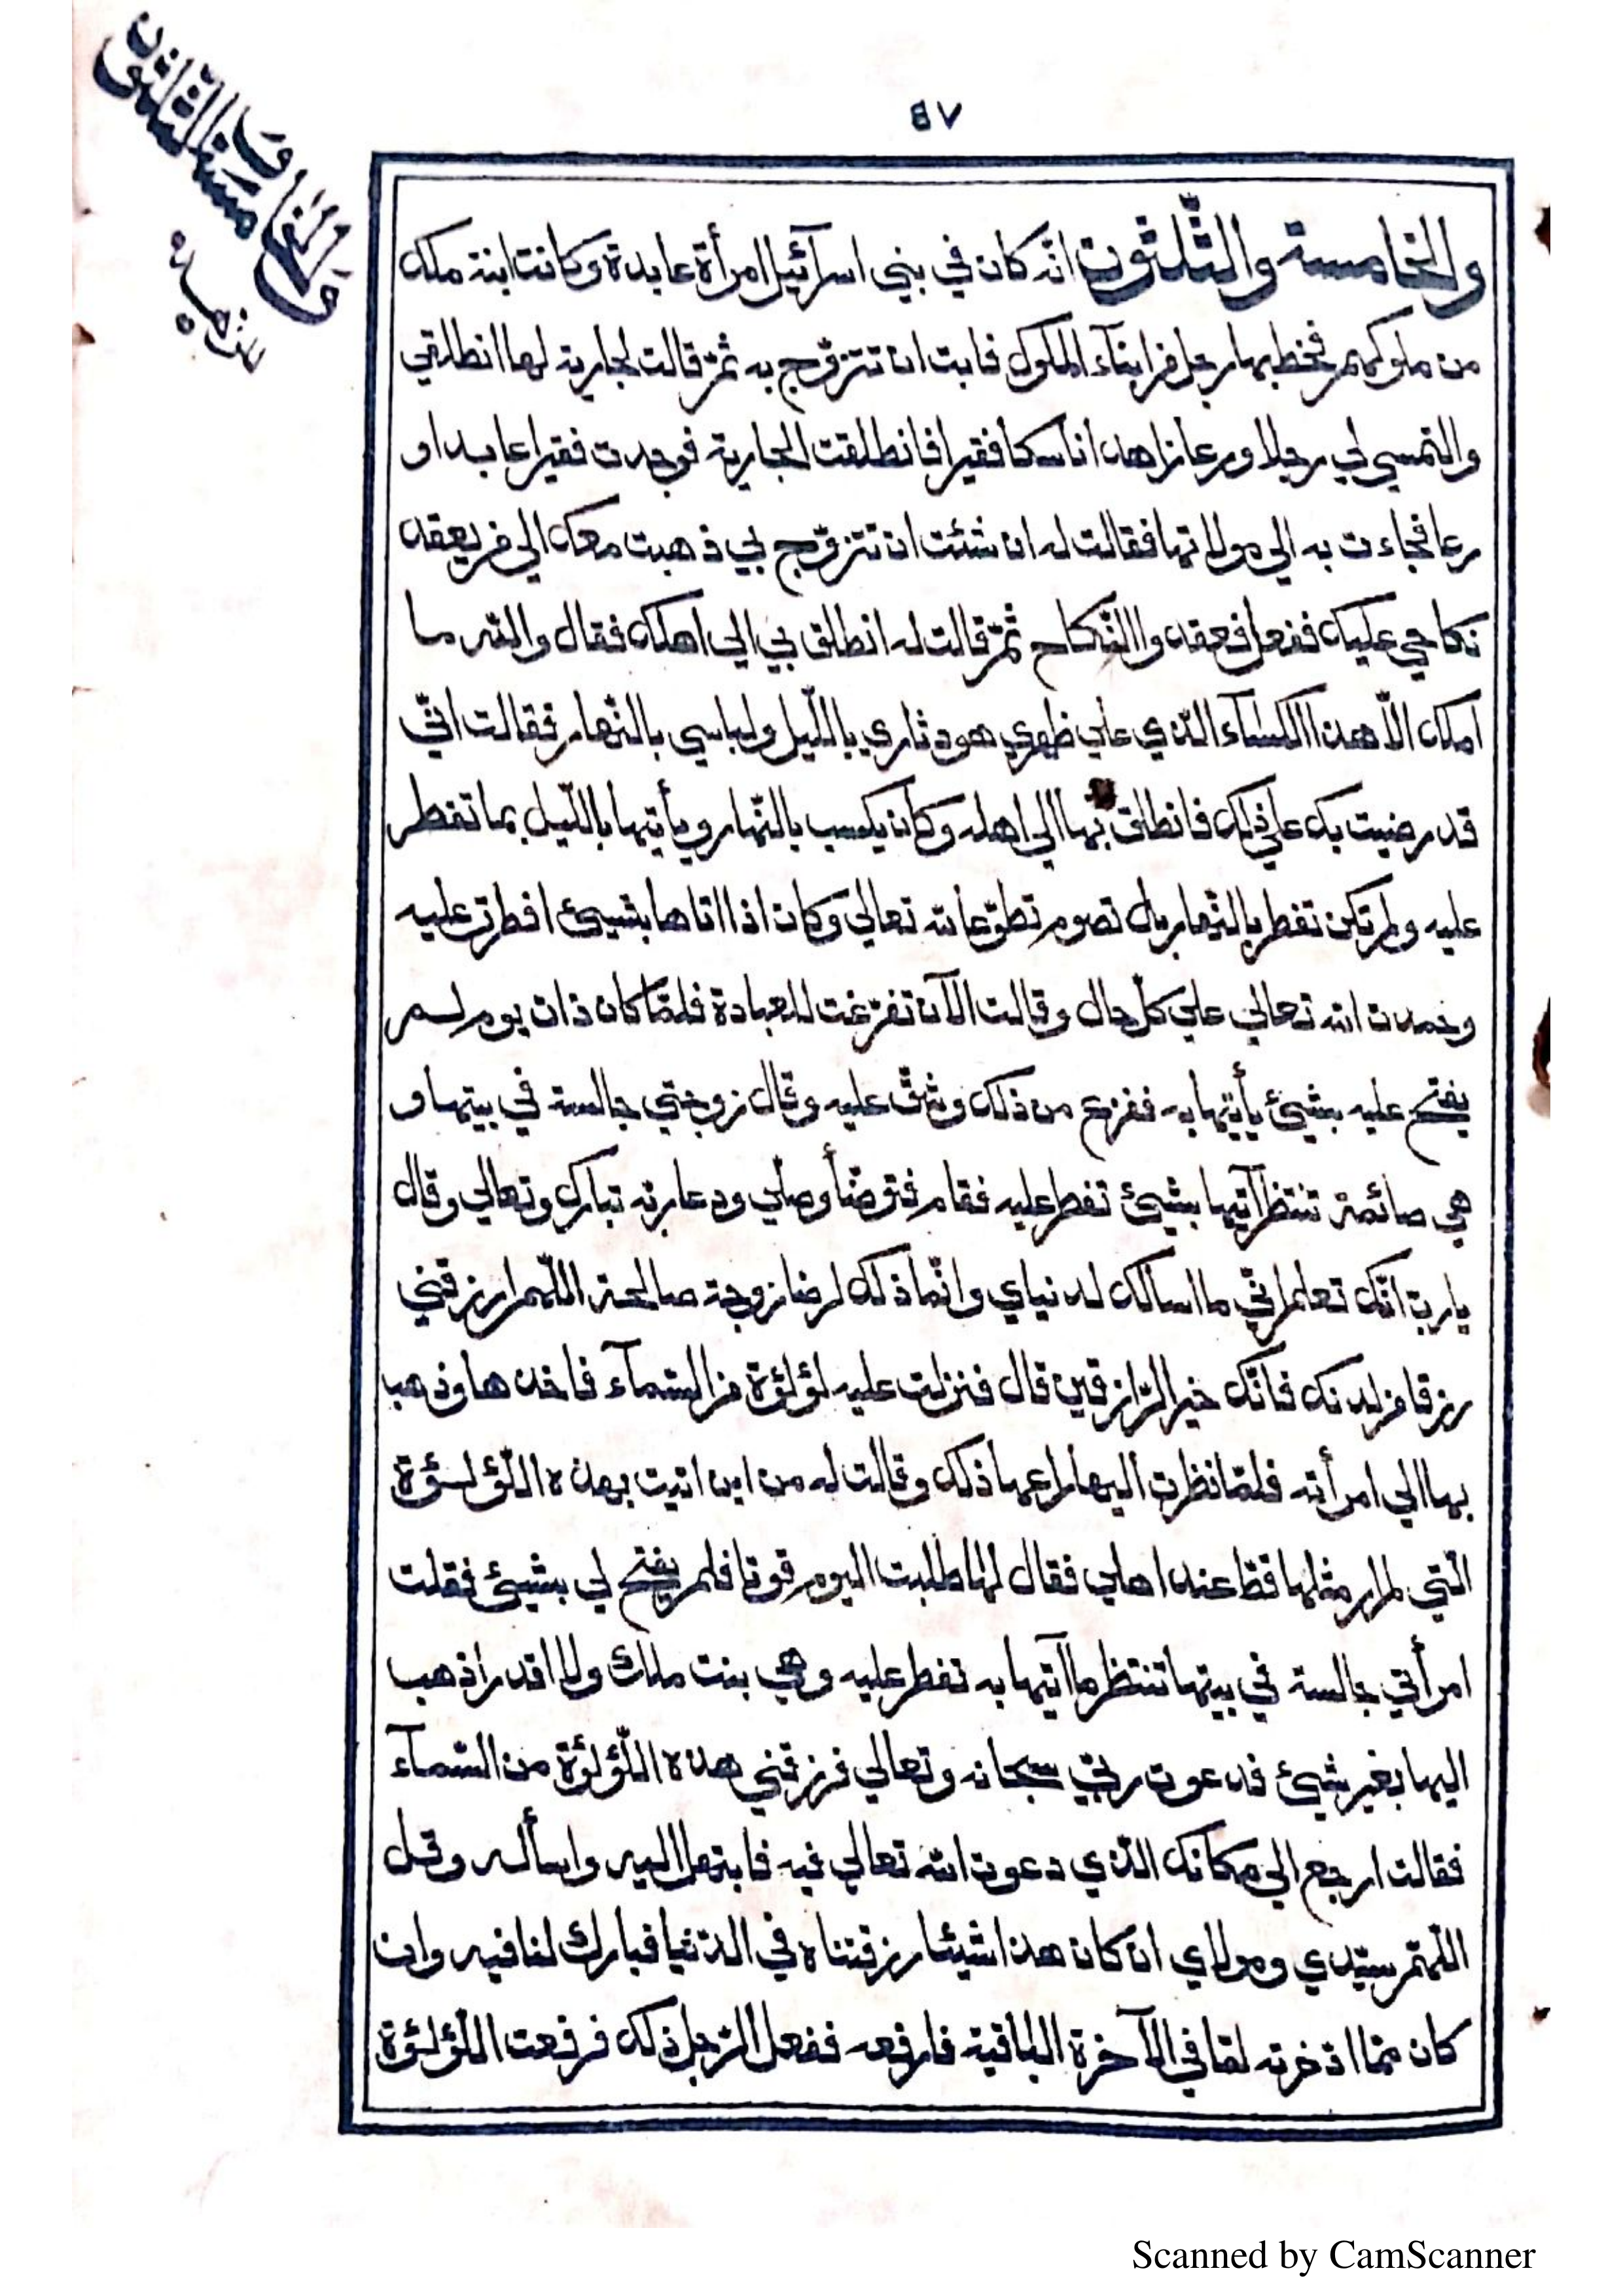 ٤٧
والخامسة والثلثون
والخامسة والثّلثون انّه كان في بني اسرآئيل امرأة عابدة وكانت ابنة ملك
من ملوكهم فخطبها رجل من ابنآء الملوك فابت ان تتزوّج به ثمّ قالت لجارية لها انطلقي
والتمسي لي رجلا ورعا زاهدا ناسكا فقيرا فانطلقت الجارية فوجدت فقيرا عابدا و
رعا فجاءت به الي مولاتها فقالت له ان شئت ان تتزوّج بي ذهبت معك الي من يعقد
نكاحي عليك ففعل فعقد والنّكاح ثمّ قالت له انطلق بي الي اهلك فقال والله ما
املك الّا هذا الكسآء الّذي علي ظهري هو دثاري بااللّيل ولباسي بالنّهار فقالت انّي
قد رضيت بك علي ذلك فانطلق بها الي اهله وكان يكسب بالنّهار ويأتيها بااللّيل بما تفطر
عليه ولم تكن تفطر بالنّهار بل تصوم تطوّعا لله تعالي وكان اذا اتاها بشيئ افطرت عليه
وحمدت الله تعالي علي كلّ حال وقالت الآن تفرّغت للعبادة فلمّا كان ذات يوم لم
يفتح عليه بشيئ يأتيها به ففزع من ذلك وشقّ عليه وقال زوجتي جالسة في بيتها و
هي صائمة تنتظر آتيها بشيئ تفطر عليه فقام فتوضّأ وصلّي ودعا ربّه تبارك وتعالي وقال
يا ربّ انّك تعلم انّي ما اسالك لدنياي وانّما ذلك لرضا زوجة صالحة اللّهم ارزقني
رزقا من لدنك فانّك خير الرّازقين قال فنزلت عليه لؤلؤة من السّمآء فاخذها وذهب
بها الي امرأته فلمّا نظرت اليها راعها ذلك وقالت له من اين اتيت بهذه اللّؤلؤة
الّتي لم ار مثلها قطّ عند اهلي فقال لها طلبت اليوم قوتا فلم يفتح لي بشيئ فقلت
امرأتي جالسة في بيتها تنتظر ما آتيها به تفطر عليه وهي بنت ملك ولا اقدر اذهب
اليها بغير شيئ فدعوت ربّي سبحانه وتعالي فرزقني هذه اللّؤلؤة من السّمآء
فقالت ارجع الي مكانك الّذي دعوت الله تعالي فيه فابتهل اليه واسأله وقل
اللّهمّ سيّدي ومولاي ان كان هذا شيئا رزقتناه في الدّنيا فبارك لنا فيه وان
كان ممّا ادّخرته لنا في الآخرة الباقية فارفعه ففعل الرّجل ذلك فرفعت اللّؤلؤة
Scanned by CamScanner